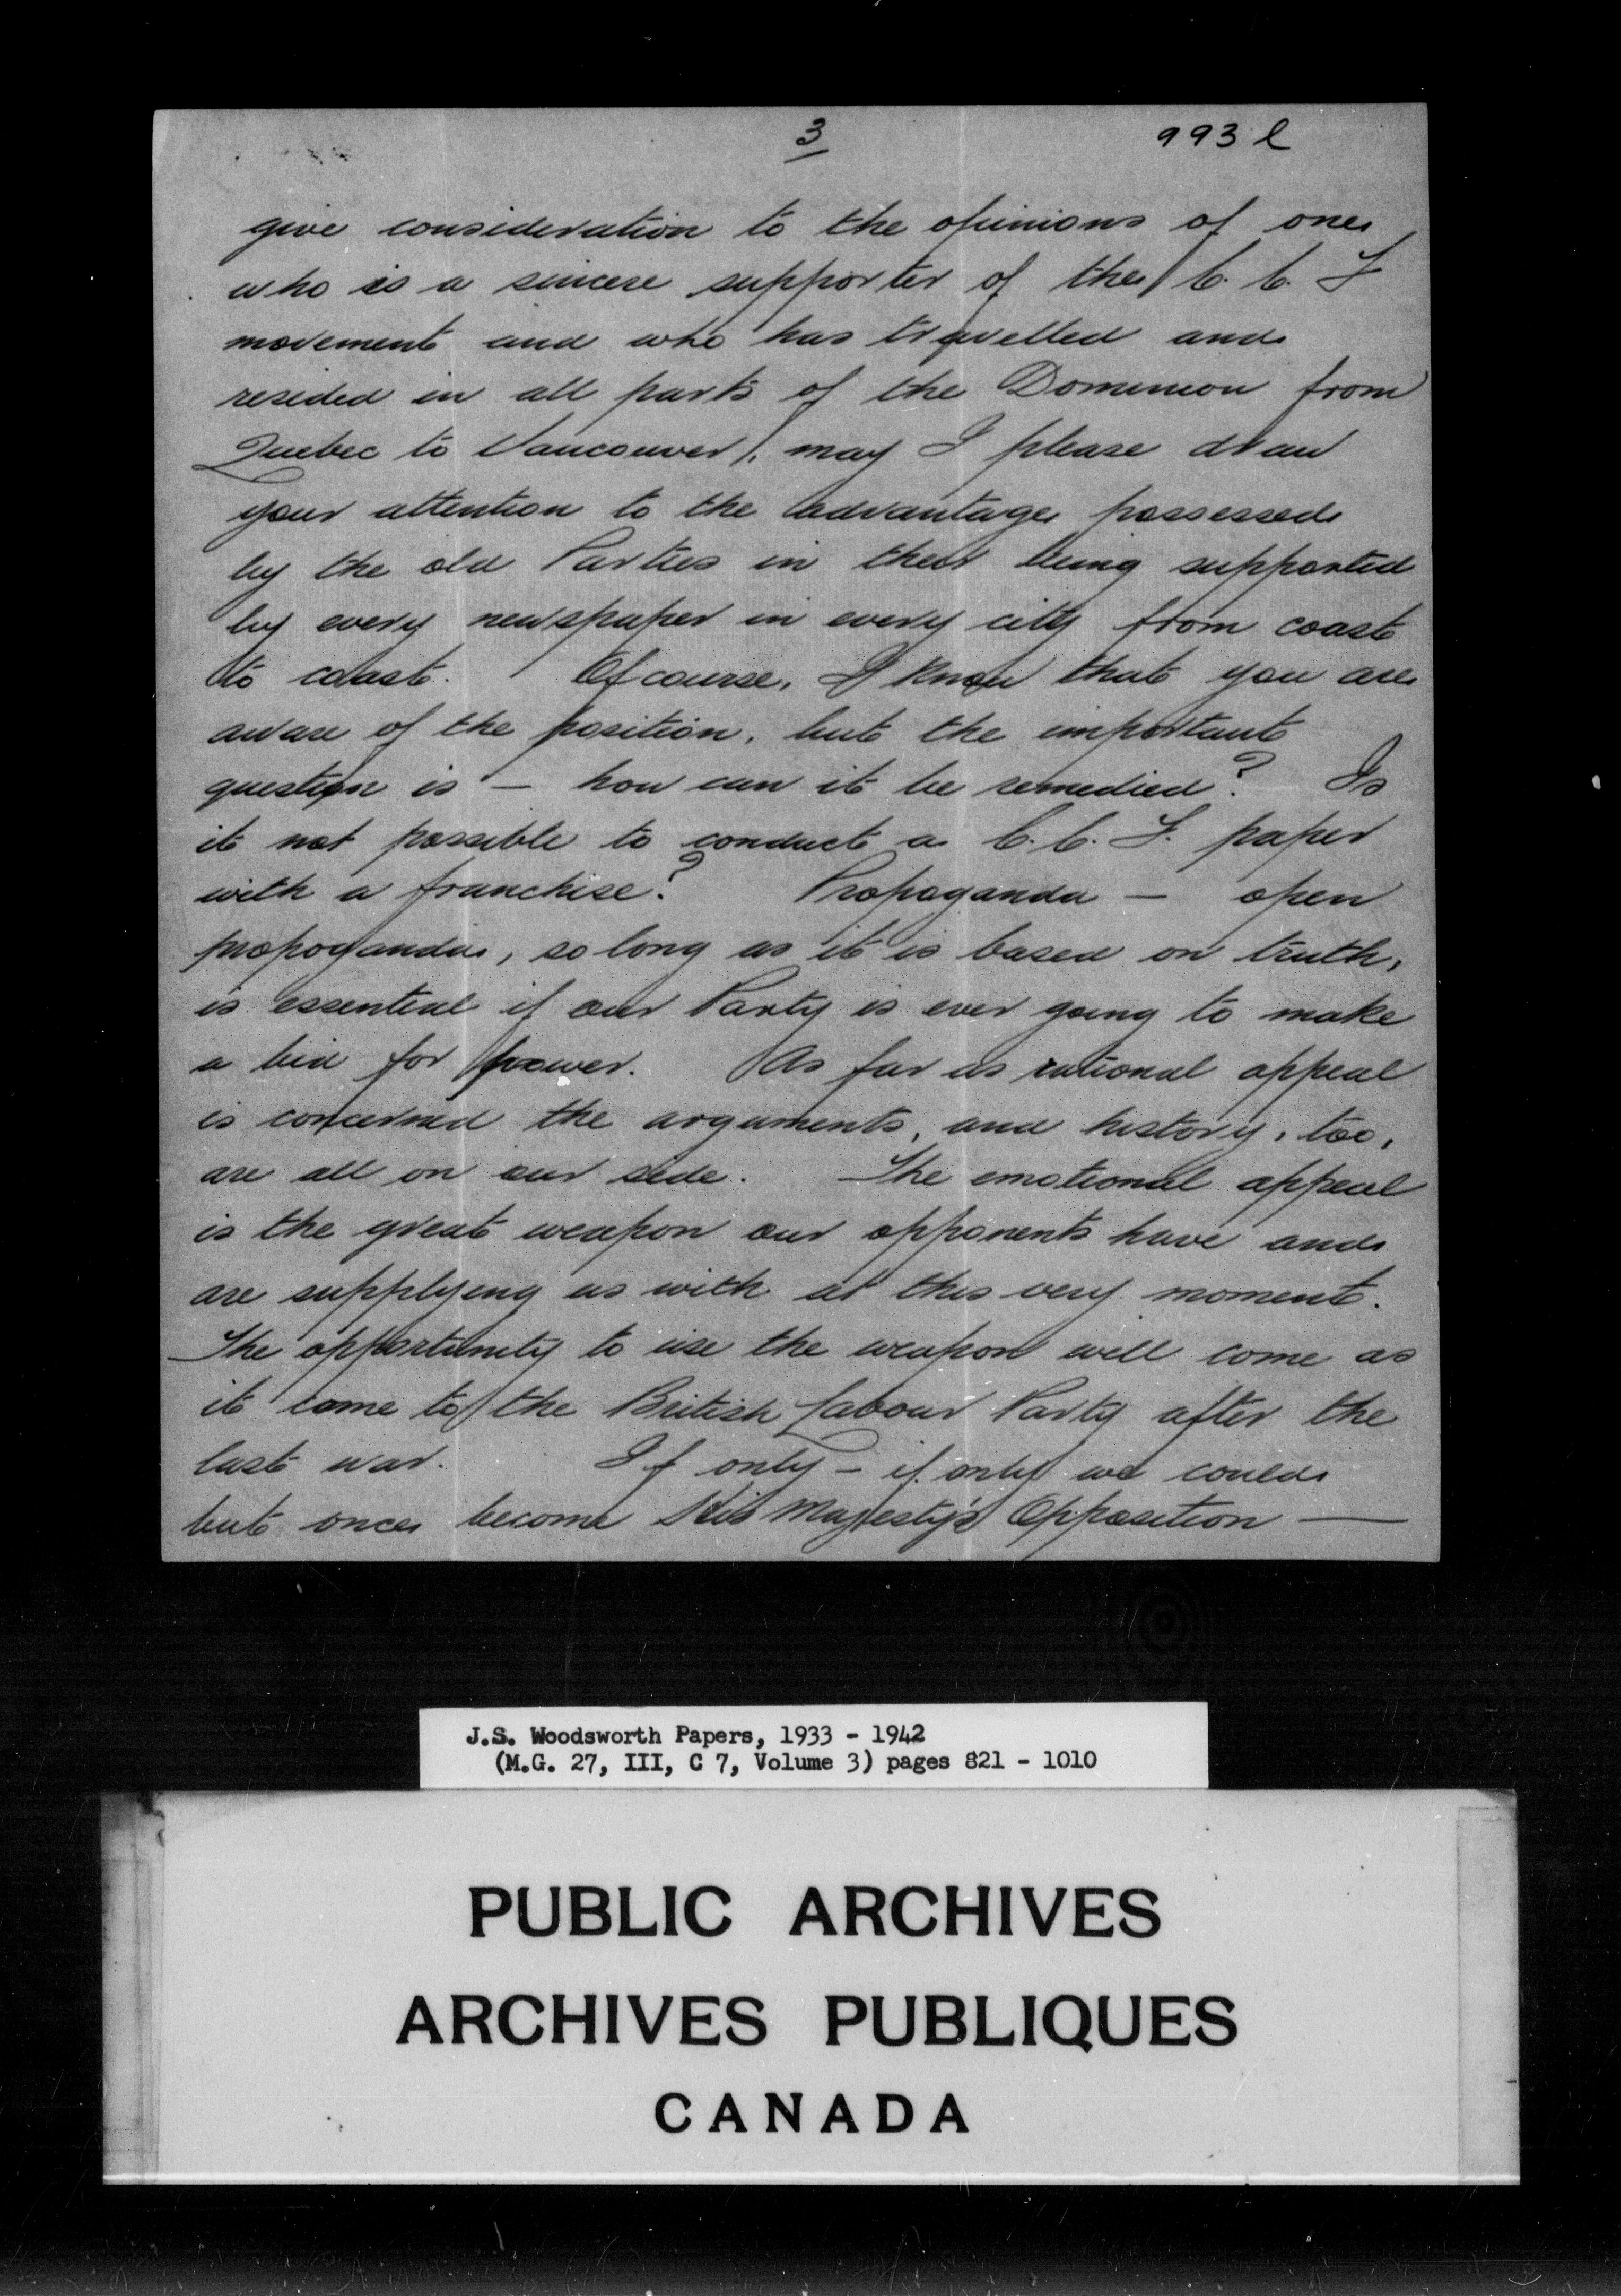 3
993 l
give consideration to the opinions of one
who is a sincere supporter of the C. C. F
movement and who has travelled and
resided in all parts of the Dominion from
Quebec to Vancouver, may I please draw
your attention to the advantage possessed
by the old Parties in their being supported
by every newspaper in every city from coast
to coast. Of course, I know that you are
aware of the position, but the important
question is - how can it be remedied? Is
it not possible to conduct a C. C. F. paper
with a franchise? Propaganda - open
propoganda, so long as it is based on truth,
is essential if our Party is ever going to make
a bid for power. As far as rational appeal
is concerned the arguments, and history, too,
are all on our side. The emotional appeal
is the great weapon our opponents have and
are supplying us with at this very moment.
The opportunity to use the weapon will come as
it came to the British Labour Party after the
last war. If only - if only we could
but once become His Majesty's Opposition —
J.S. Woodsworth Papers, 1933 - 1942
(M.G. 27, III, C 7, Volume 3) pages 821 - 1010
PUBLIC ARCHIVES
ARCHIVES PUBLIQUES
CANADA